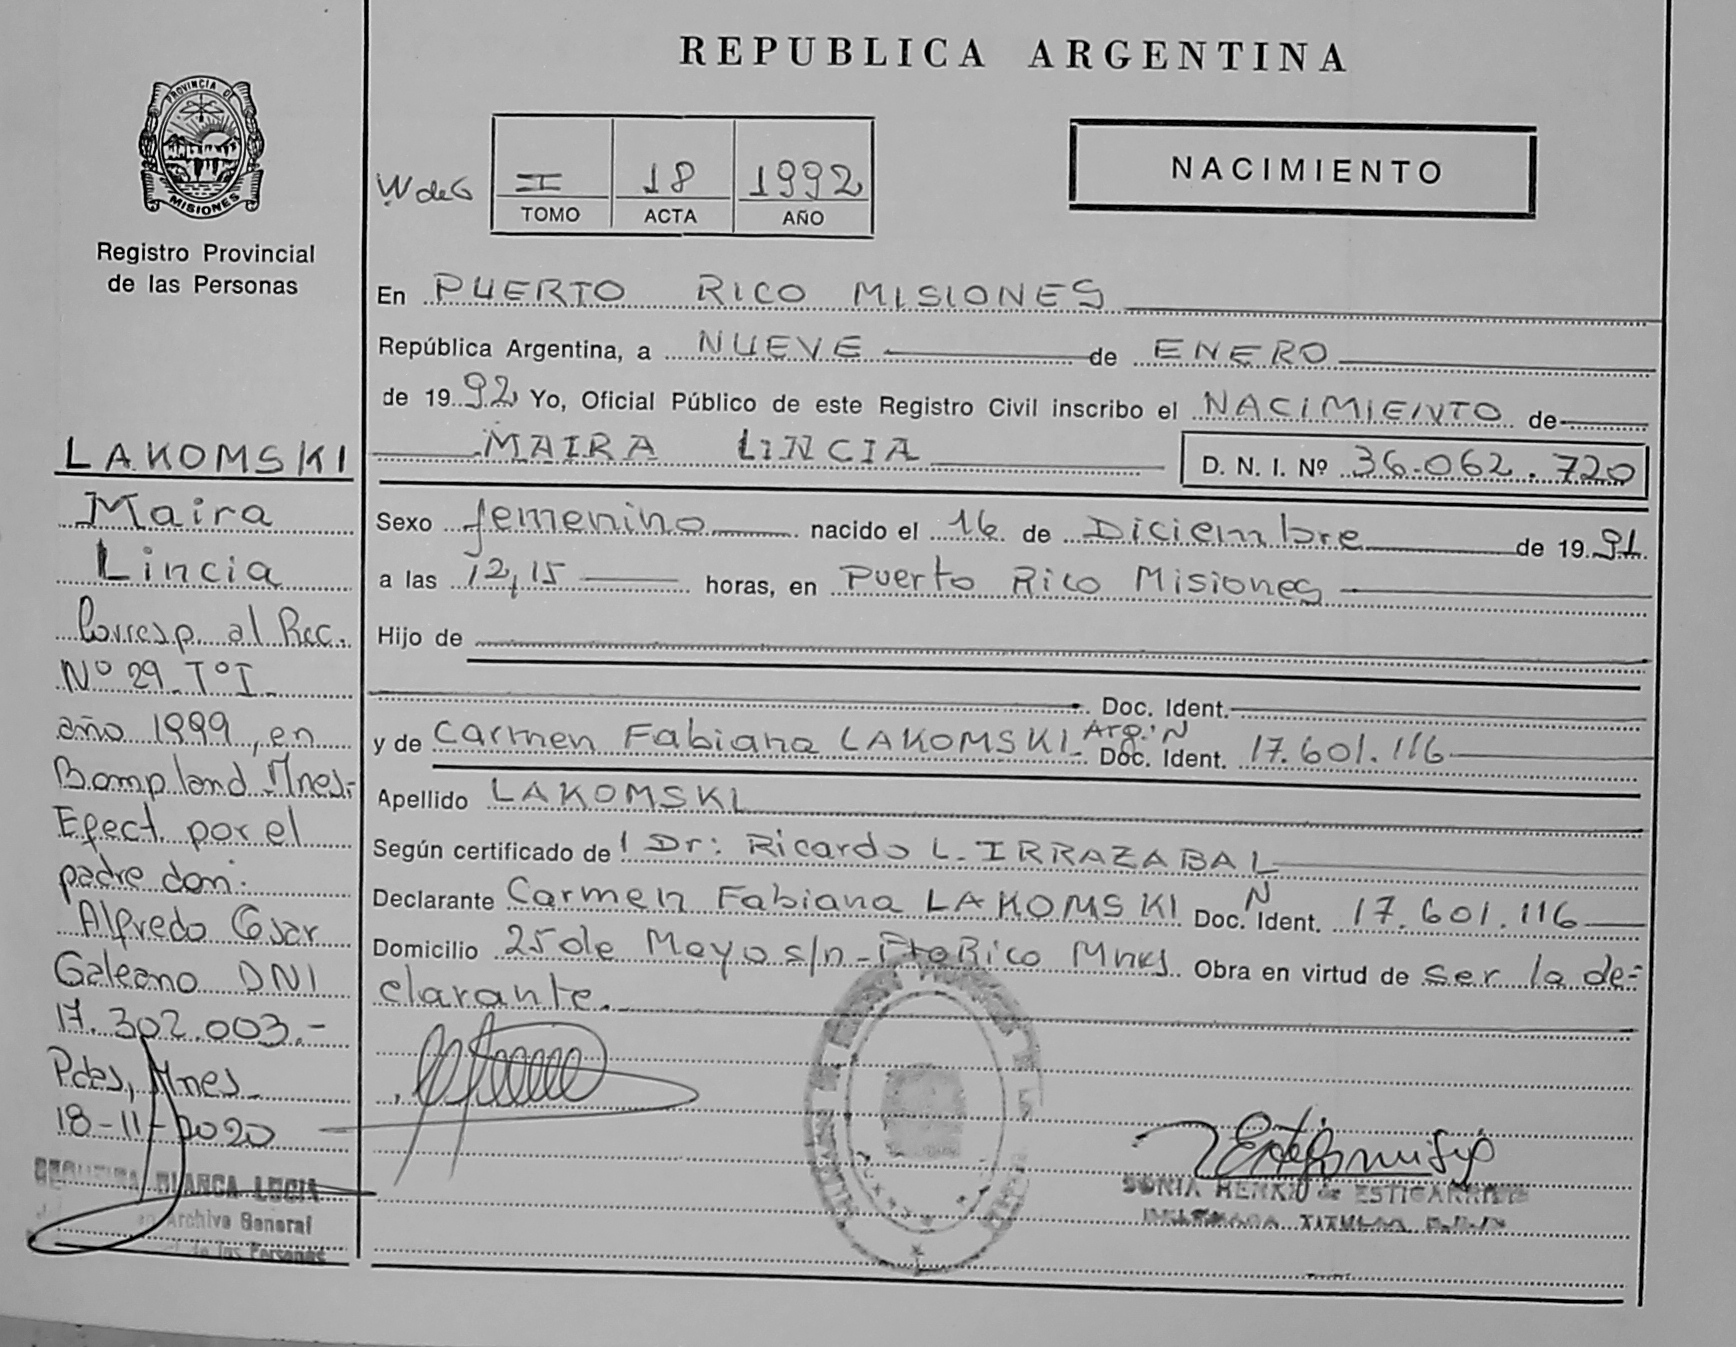 REPUBLICA ARGENTINA
PROVINCIA DE
MISIONES
Registro Provincial
de las Personas
W de G
I 18 1992
TOMO ACTA AÑO
NACIMIENTO
En PUERTO RICO MISIONES
República Argentina, a NUEVE de ENERO
de 1992 Yo, Oficial Público de este Registro Civil inscribo el NACIMIENTO de
MAIRA LINCIA D. N. I. Nº 36.062.720
Sexo femenino nacido el 16 de Diciembre de 1991
a las 12,15 horas, en Puerto Rico Misiones
Hijo de
Doc. Ident.
y de Carmen Fabiana LAKOMSKI Arg. N Doc. Ident. 17.601.116
Apellido LAKOMSKI
Según certificado de Dr: Ricardo L. IRRAZABAL
Declarante Carmen Fabiana LAKOMSKI N Doc. Ident. 17.601.116
Domicilio 25 de Mayo s/n - Pto Rico Mnes Obra en virtud de ser la de-
clarante.
LAKOMSKI
Maira
Lincia
Corresp. al Rec.
Nº 29 Tº I
año 1999, en
Bompland Mnes.-
Efect. por el
padre don:
Alfredo Cesar
Galeano DNI
17.302.003.-
Pdas, Mnes
18-11-2020
BLANCA LUCIA
Archivo General
de las Personas
SONIA de
TITULAR